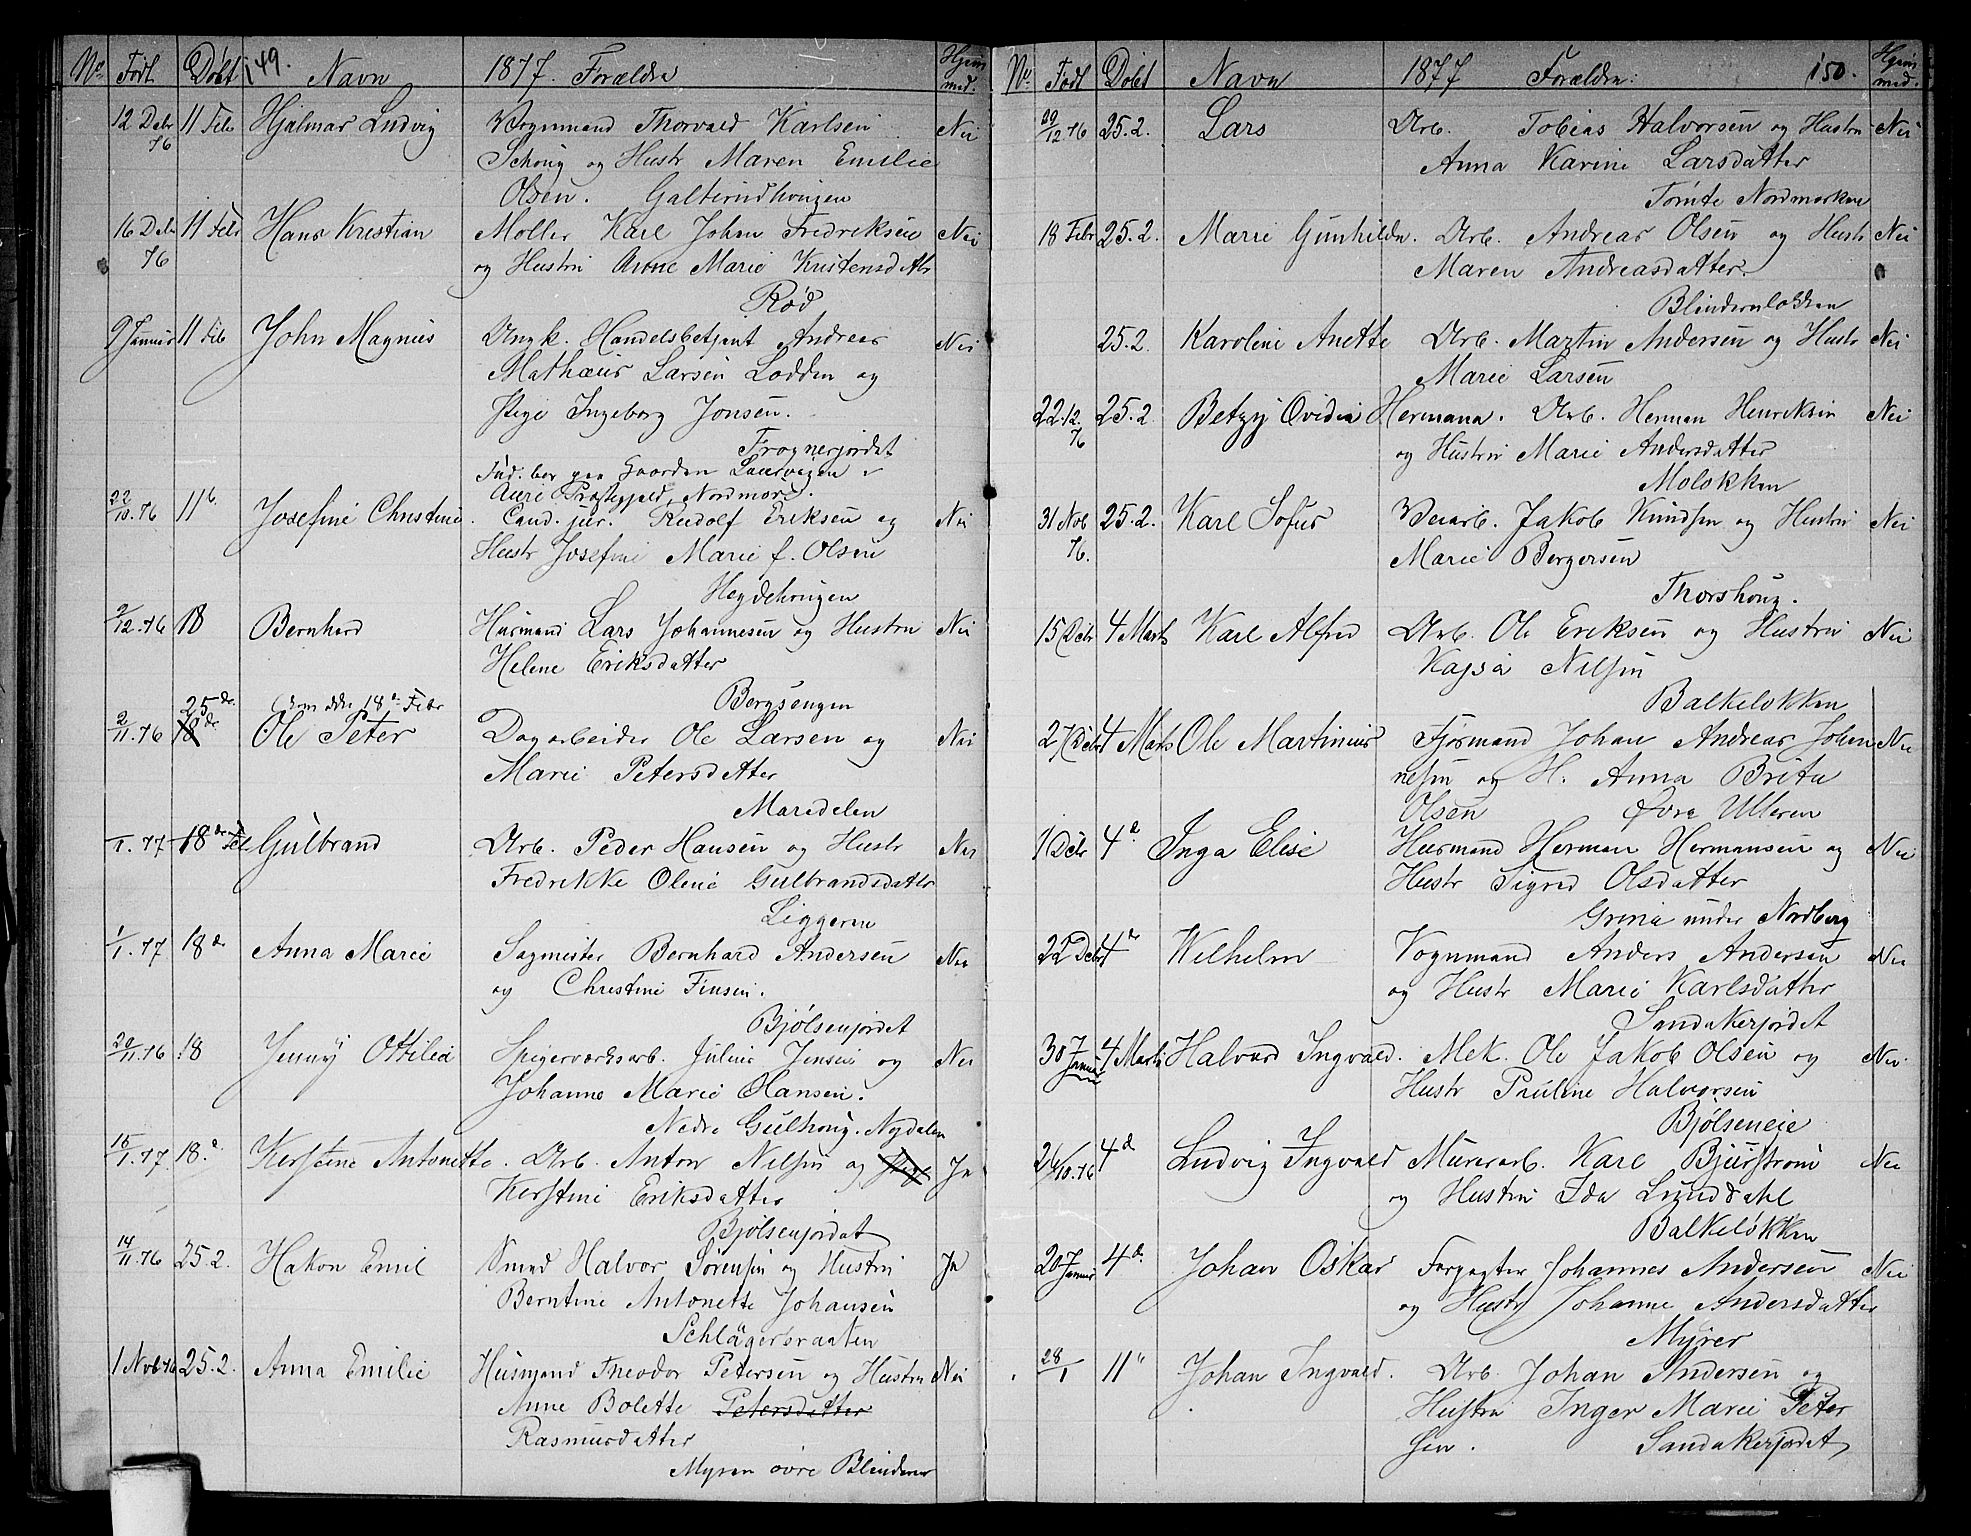 No Født Døbt 149. Navn 1877. Forældre Hjem med.
12 Debr 76 11 Feb Hjalmar Ludvig Vognmand Thorvald Karlsen Nei
Schoug og Hustr Maren Emilie
Olsen. Galterudhougen
16 Debr 76 11 Febr Hans Kristian Møller Karl Johan Fredriksen Nei
og Hustru Anne Marie Kristensdatr
Rød
9 Januar 11 Feb John Magnus Ungk. Handelsbetjent Andreas Nei
Mathæus Larsen Lodden og
Pige Ingeborg Jonsen.
Frognerjordet
Fad. bor paa Gaarden
Aure Præstegjeld, Nordmøre.
22/10.76 11 Josefine Christine. Cand. jur. Rudolf Eriksen og Nei
Hustr Josefine Marie f. Olsen
Hegdehougen
9/12.76 18 Bernhard Husmand Lars Johannesen og Hustru Nei
Helene Eriksdatter
Bergsengen
25de 18de Febr
2/11.76 18de Ole Peter Dagarbeider Ole Larsen og Nei
Marie Petersdatter
Maredelen
/1.77 18de Feb Gulbrand Arb. Peder Hansen og Hustr Nei
Fredrikke Oline Gulbrandsdatter
Liggeren
1/1.77 18de Anna Marie Sagmester Bernhard Andersen Nei
og Christine Finsen.
Bjølsenjordet
20/11.76 18 Jenny Ottilia Spigerværksarb. Julius Jensen og Nei
Johanne Marie Hansen.
Nedre Gulhoug. Nydalen
15/1.77. 18.d Kerstine Antonette. Arb. Anton Nilsen og Pige Ja
Kerstine Eriksdatter
Bjølsenjordet
14/11.76 25.2. Hakon Emil Smed Halvor Sørensen og Hustru Ja
Berntine Antonette Johansen
Schlägersraaten
1 Nvb 76 25.2. Anna Emilie Husmand Theodor Petersen og Hustru Nei
Anne Bolette Petersdatter
Rasmusdatter
Myren øvre Blindern
No. Født Døbt Navn 1877 Forældre: 150. Hjem med.
29/12 76 25.2. Lars Arb. Tobias Halvorsen og Hustru Nei
Anna Karine Larsdatter
Tømte Nordmarken
18 Febr 25.2. Marie Gunhilda. Arb. Andreas Olsen og Hustr Nei
Maren Andreasdatter.
Blindernløkken
25.2. Karoline Anette Arb. Martin Andersen og Hustr Nei
Marie Larsen
22.12. 76 25.2 Betzy Ovidia Hermana. Arb. Herman Henriksen Nei
og Hustru Marie Andersdatter
Moløkken
31 Nvb 76. 25.2. Karl Sofus Veiarb. Jakob Knudsen og Hustru Nei
Marie Bergersen
Thorshoug.
15 Debr 4 Marts Karl Alfred Arb. Ole Eriksen og Hustru Nei
Kajsa Nilsen
Balkeløkken
27 Debr 4 Marts Ole Martinius Formand Johan Andreas Johan Nei
nesen og H. Anna Brita
Olsen Øvre Ulleren
1 Debr 4d Inga Elise Husmand Herman Hermansen og Nei
Hustr Sigrid Olsdatter
Grina under Nordberg
22 Debr 4d Wilhelm Vognmand Anders Andersen Nei
og Hustr Marie Karlsdatter
Sandakerjordet
30 Januar 4 Marts Halvard Ingvald. Mek. Ole Jakob Olsen og Nei
Hustr Pauline Halvorsen
Bjølseneie
/10.76 4d Ludvig Ingvald Murerarb. Karl Bjurstrøm Nei
og Hustru Ida Lunddahl
Balkeløkken
20 Januar 4d. Johan Oskar Forpagter Johannes Andersen Nei
og Hustr Johanne Andersdatter
Myrer
28/1 11 Johan Ingvald. Arb. Johan Andersen og
Hustru Inger Marie Peter
sen. Sandakerjordet